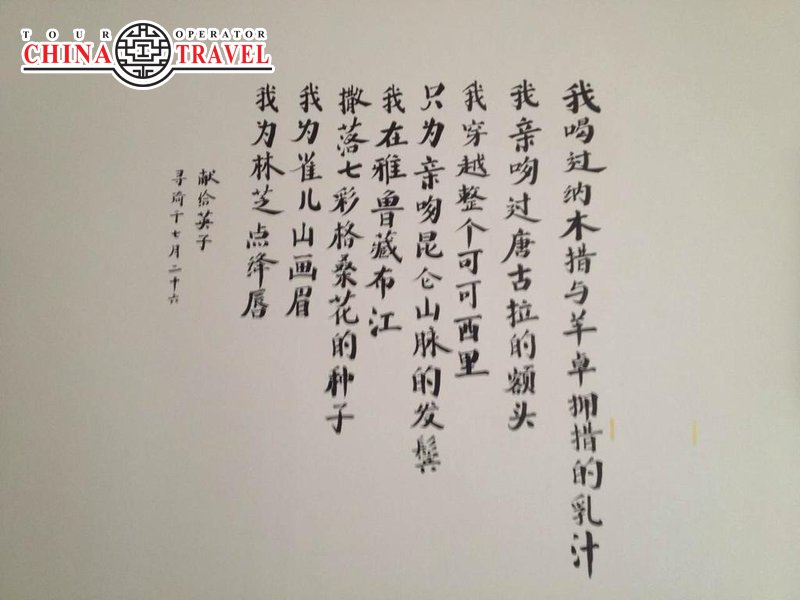 TOUR OPERATOR
CHINA TRAVEL
我喝过纳木措与羊卓拥措的乳汁
我亲吻过唐古拉的额头
我穿越整个可可西里
只为亲吻昆仑山脉的发鬓
我在雅鲁藏布江
撒落七彩格桑花的种子
我为雀儿山画眉
我为林芝点绛唇
献给英子
寻琦于七月二十六